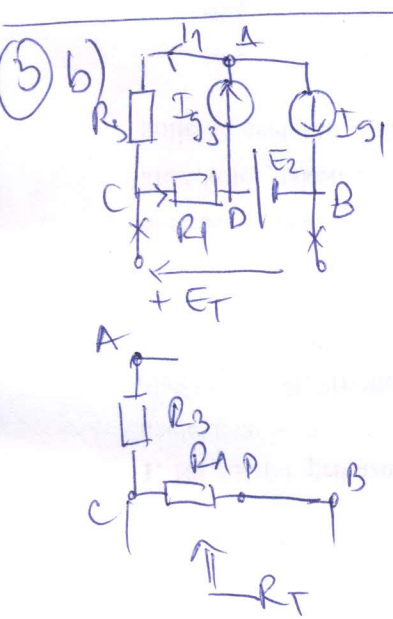 3 b)
I1 A
R3 Ig3 Ig1
E2
C R1 D B
+ ET
A
R3
R1 D B
C
RT